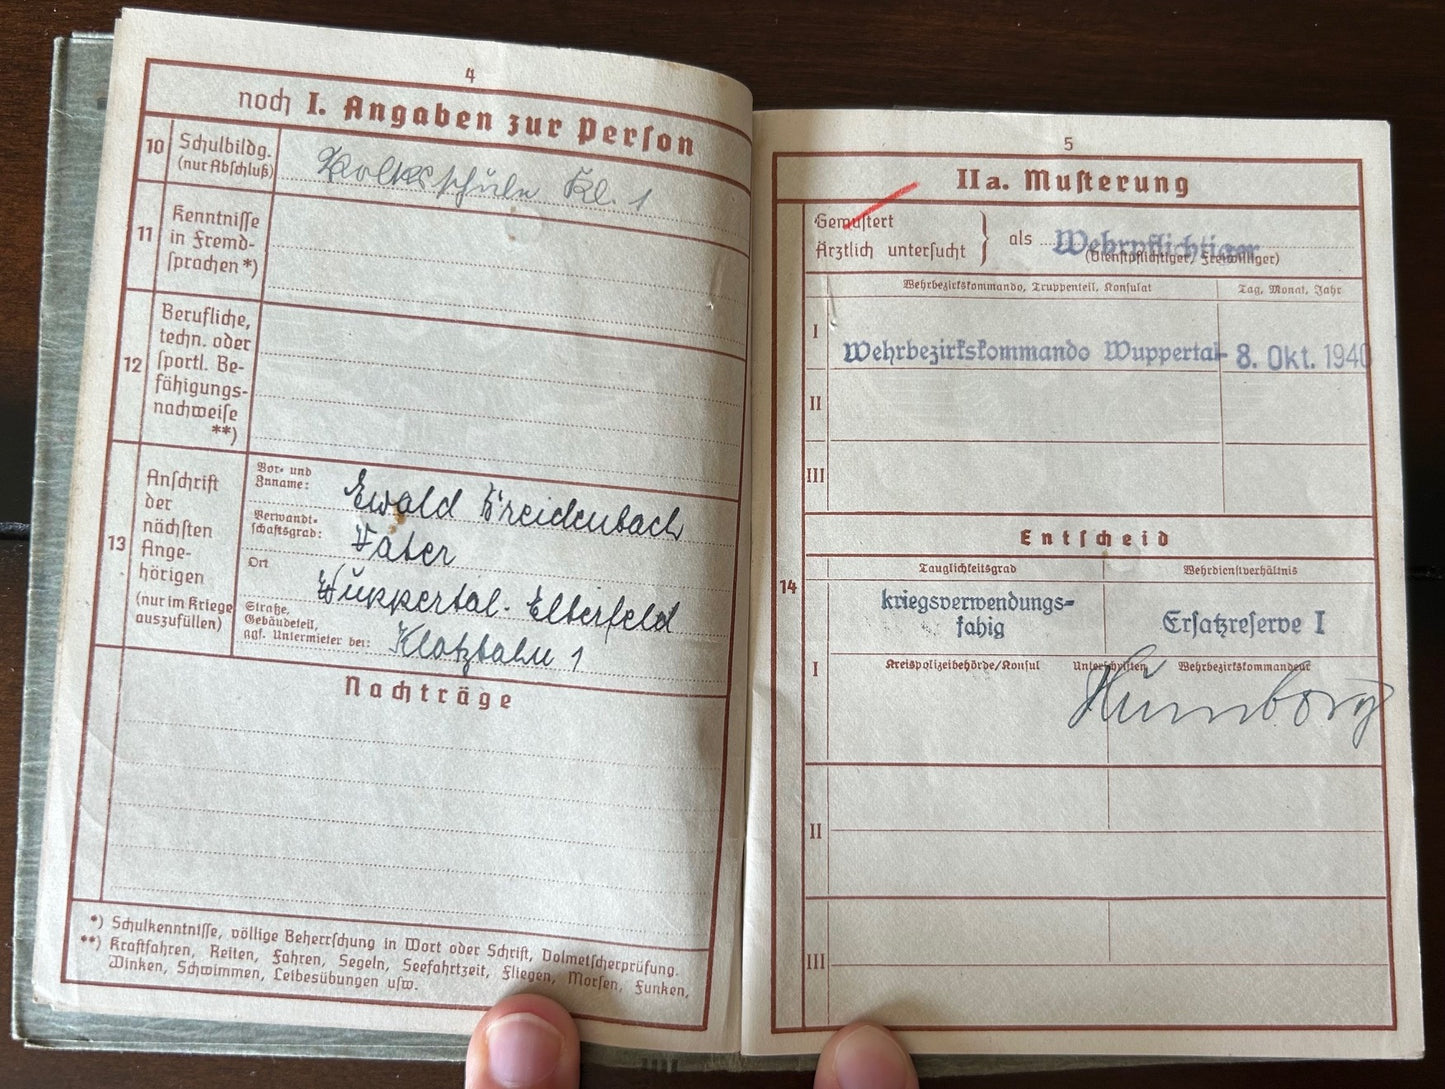 4
noch I. Angaben zur Person
10
Schulbildg.
(nur Abschluß)
Volksschule Kl. 1
11
Kenntnisse
in Fremd-
sprachen *)
12
Berufliche,
techn. oder
sportl. Be-
fähigungs-
nachweise
**)
13
Anschrift
der
nächsten
Ange-
hörigen
(nur im Kriege
auszufüllen)
Vor- und
Zuname:
Ewald Breidenbach
Verwandt-
schaftsgrad:
Vater
Ort
Wuppertal-Elberfeld
Straße,
Gebäudeteil,
ggf. Untermieter bei:
Klotzbahn 1
Nachträge
*) Schulkenntnisse, völlige Beherrschung in Wort oder Schrift, Dolmetscherprüfung.
**) Kraftfahren, Reiten, Fahren, Segeln, Seefahrtzeit, Fliegen, Morsen, Funken,
Winken, Schwimmen, Leibesübungen usw.
5
II a. Musterung
Gemustert
Ärztlich untersucht
als
Wehrpflichtiger
(Dienstpflichtiger, Freiwilliger)
Wehrbezirkskommando, Truppenteil, Konsulat
Tag, Monat, Jahr
I
Wehrbezirkskommando Wuppertal
- 8. Okt. 1940
II
III
Entscheid
14
Tauglichkeitsgrad
Wehrdienstverhältnis
kriegsverwendungs-
fähig
Ersatzreserve I
I
Kreispolizeibehörde/Konsul
Unterschriften
Wehrbezirkskommandeur
II
III